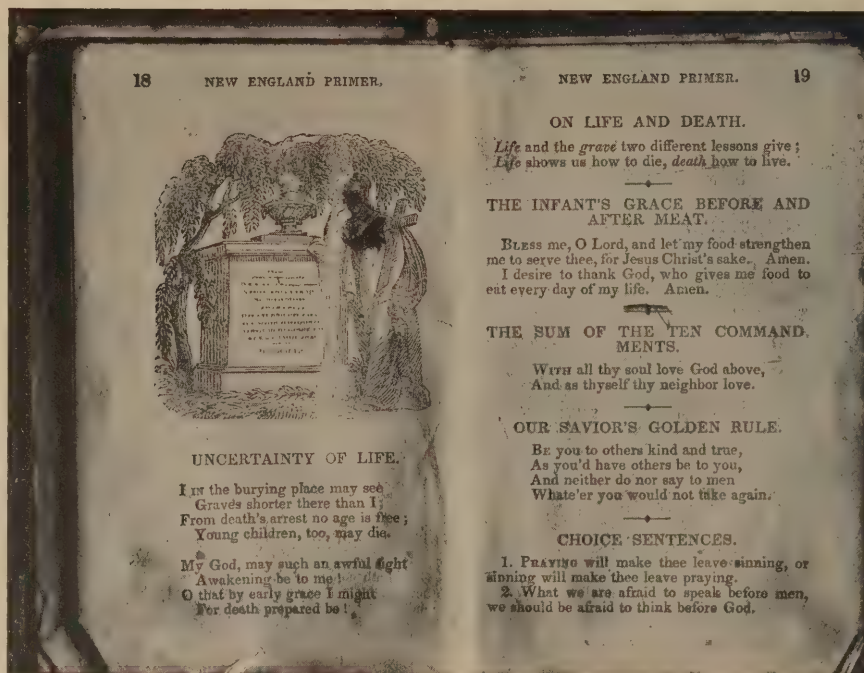 18 NEW ENGLAND PRIMER.
UNCERTAINTY OF LIFE.
I IN the burying place may see
Graves shorter there than I;
From death's arrest no age is free;
Young children, too, may die.
My God, may such an awful sight
Awakening be to me!
O that by early grace I might
For death prepared be!
NEW ENGLAND PRIMER. 19
ON LIFE AND DEATH.
Life and the grave two different lessons give;
Life shows us how to die, death how to live.
THE INFANT'S GRACE BEFORE AND
AFTER MEAT.
BLESS me, O Lord, and let my food strengthen
me to serve thee, for Jesus Christ's sake. Amen.
I desire to thank God, who gives me food to
eat every day of my life. Amen.
THE SUM OF THE TEN COMMAND
MENTS.
WITH all thy soul love God above,
And as thyself thy neighbor love.
OUR SAVIOR'S GOLDEN RULE.
BE you to others kind and true,
As you'd have others be to you,
And neither do nor say to men
Whate'er you would not take again.
CHOICE SENTENCES.
1. PRAYING will make thee leave sinning, or
sinning will make thee leave praying.
2. What we are afraid to speak before men,
we should be afraid to think before God.